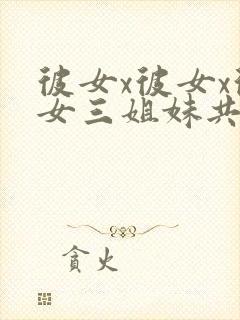 彼女x彼女x彼
女三姐妹共
貪火